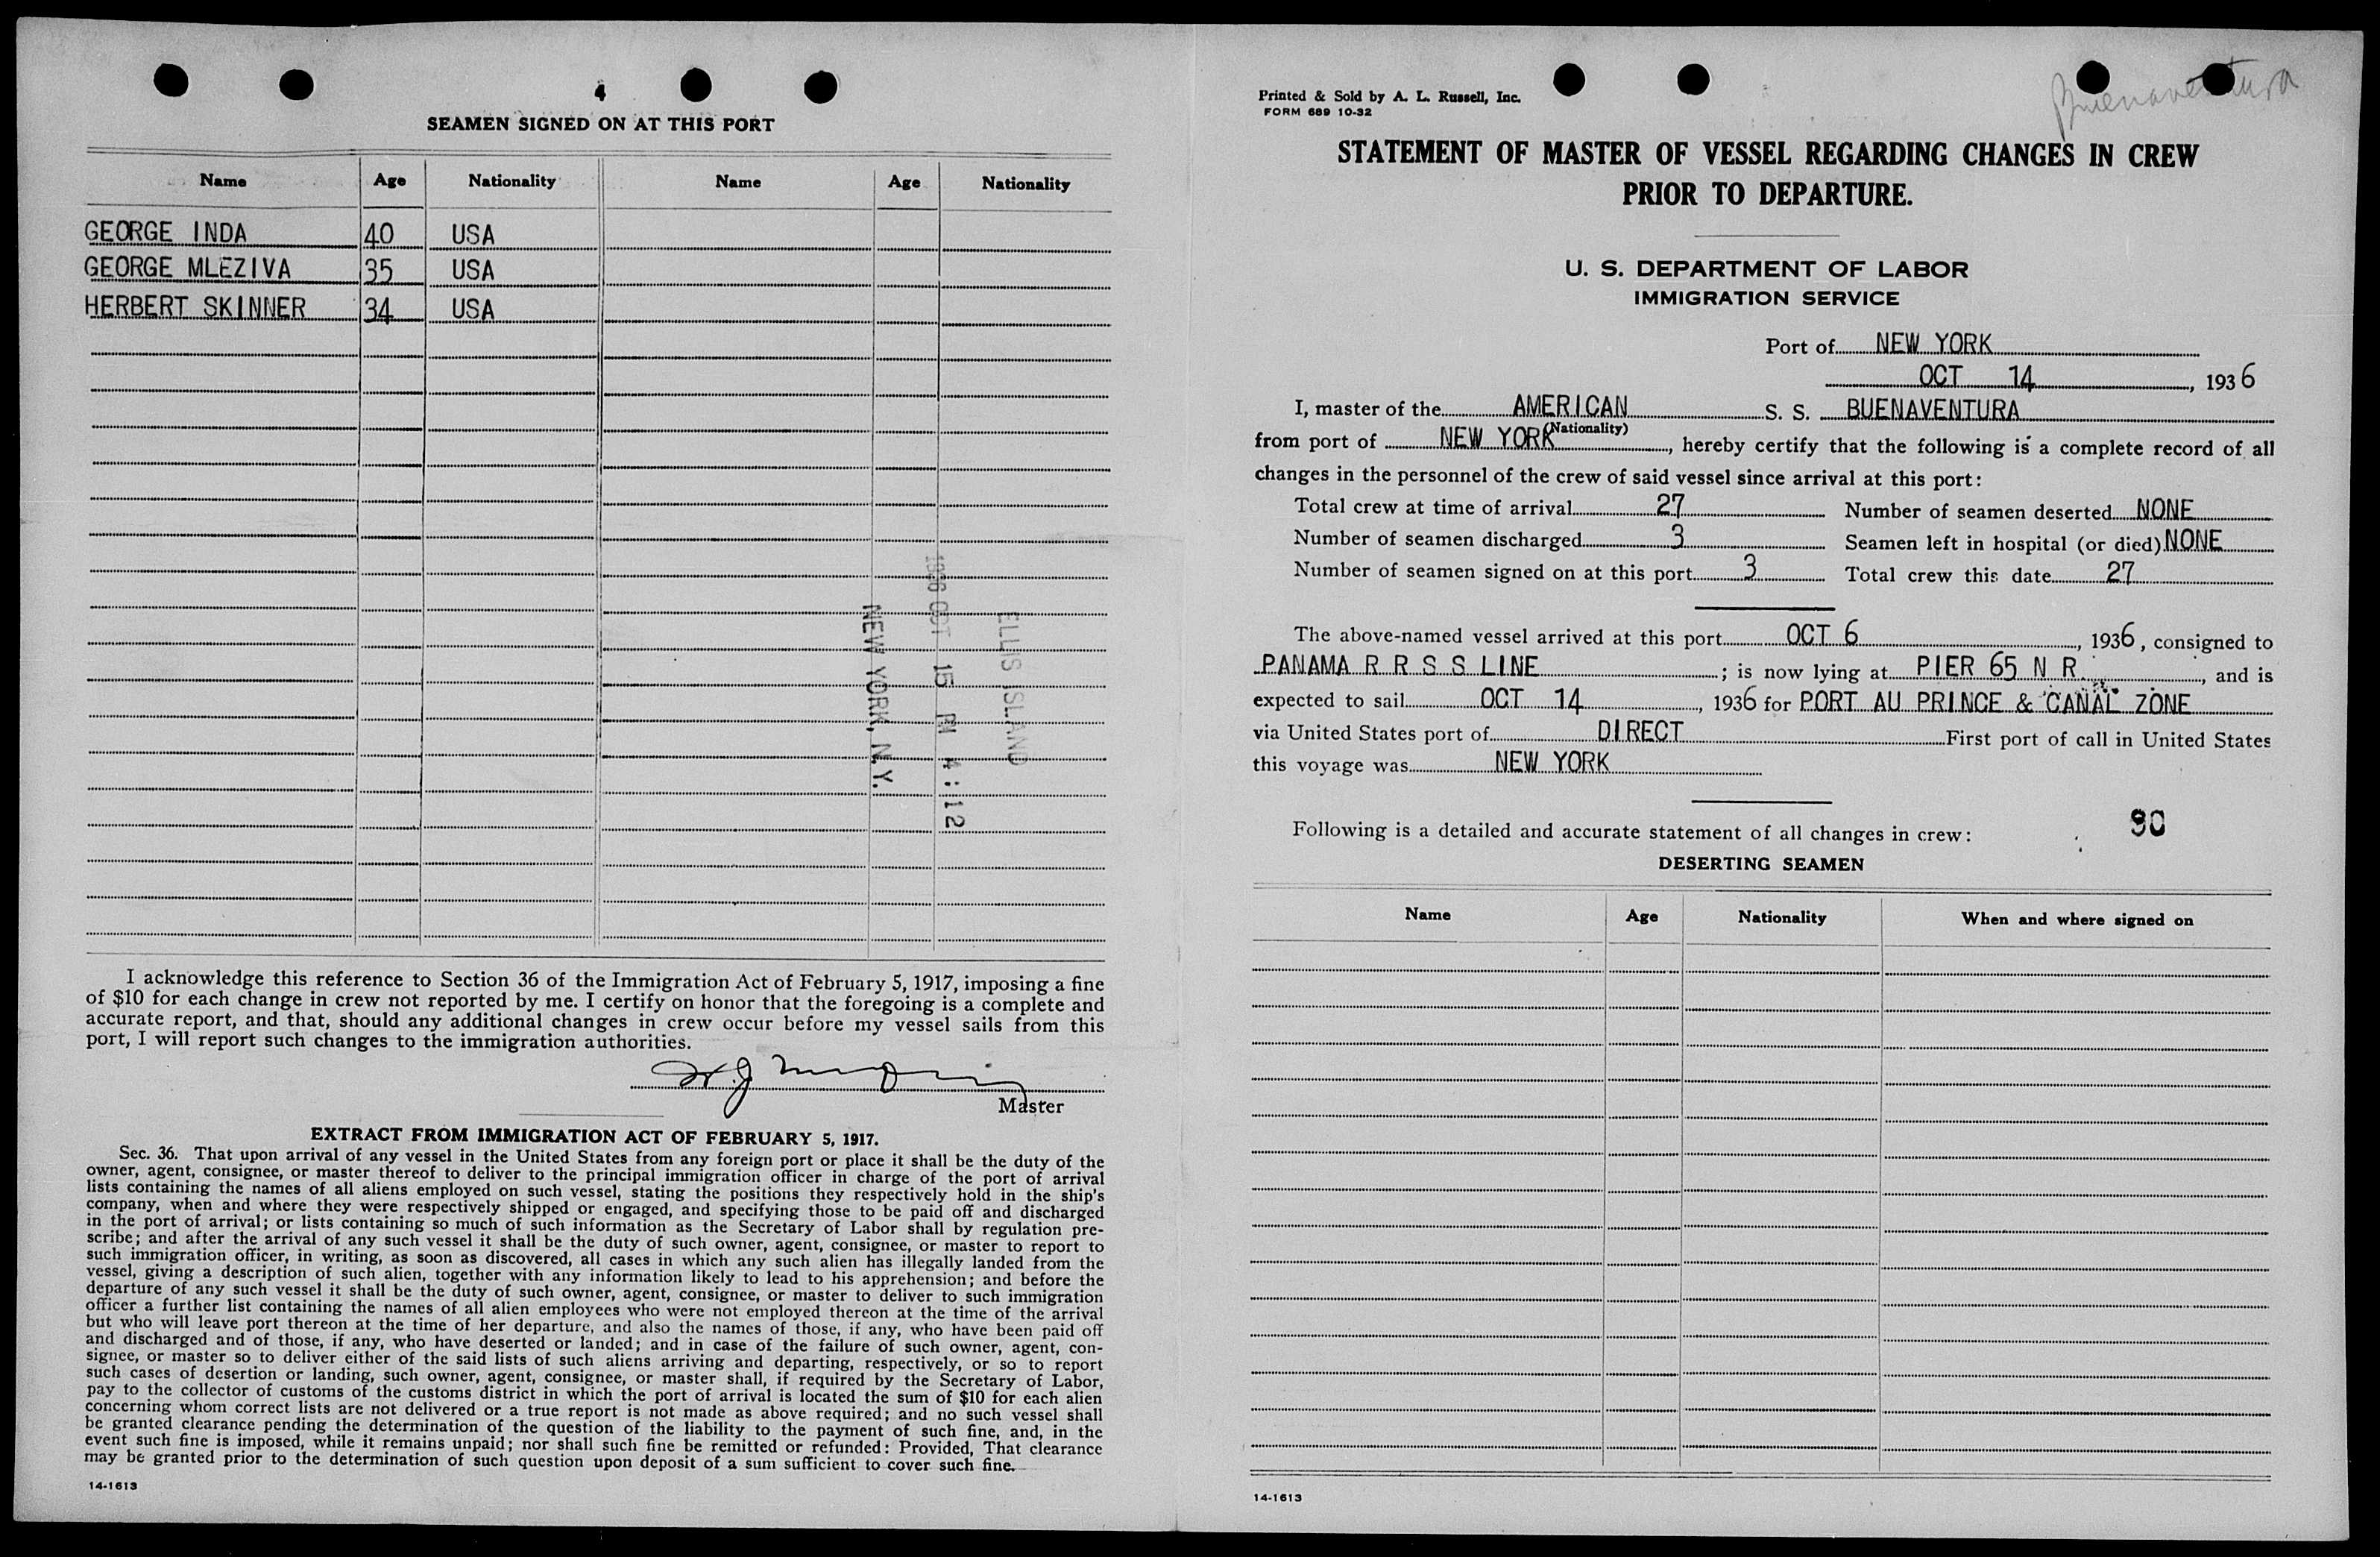 4
SEAMEN SIGNED ON AT THIS PORT
Name Age Nationality Name Age Nationality
GEORGE INDA 40 USA
GEORGE MLEZIVA 35 USA
HERBERT SKINNER 34 USA
ELLIS ISLAND
1936 OCT 15 PM 4:12
NEW YORK, N.Y.
I acknowledge this reference to Section 36 of the Immigration Act of February 5, 1917, imposing a fine
of $10 for each change in crew not reported by me. I certify on honor that the foregoing is a complete and
accurate report, and that, should any additional changes in crew occur before my vessel sails from this
port, I will report such changes to the immigration authorities.
Master
EXTRACT FROM IMMIGRATION ACT OF FEBRUARY 5, 1917.
Sec. 36. That upon arrival of any vessel in the United States from any foreign port or place it shall be the duty of the
owner, agent, consignee, or master thereof to deliver to the principal immigration officer in charge of the port of arrival
lists containing the names of all aliens employed on such vessel, stating the positions they respectively hold in the ship's
company, when and where they were respectively shipped or engaged, and specifying those to be paid off and discharged
in the port of arrival; or lists containing so much of such information as the Secretary of Labor shall by regulation pre-
scribe; and after the arrival of any such vessel it shall be the duty of such owner, agent, consignee, or master to report to
such immigration officer, in writing, as soon as discovered, all cases in which any such alien has illegally landed from the
vessel, giving a description of such alien, together with any information likely to lead to his apprehension; and before the
departure of any such vessel it shall be the duty of such owner, agent, consignee, or master to deliver to such immigration
officer a further list containing the names of all alien employees who were not employed thereon at the time of the arrival
but who will leave port thereon at the time of her departure, and also the names of those, if any, who have been paid off
and discharged and of those, if any, who have deserted or landed; and in case of the failure of such owner, agent, con-
signee, or master so to deliver either of the said lists of such aliens arriving and departing, respectively, or so to report
such cases of desertion or landing, such owner, agent, consignee, or master shall, if required by the Secretary of Labor,
pay to the collector of customs of the customs district in which the port of arrival is located the sum of $10 for each alien
concerning whom correct lists are not delivered or a true report is not made as above required; and no such vessel shall
be granted clearance pending the determination of the question of the liability to the payment of such fine, and, in the
event such fine is imposed, while it remains unpaid; nor shall such fine be remitted or refunded: Provided, That clearance
may be granted prior to the determination of such question upon deposit of a sum sufficient to cover such fine.
14-1613
Buenaventura
Printed & Sold by A. L. Russell, Inc.
FORM 689 10-32
STATEMENT OF MASTER OF VESSEL REGARDING CHANGES IN CREW
PRIOR TO DEPARTURE.
U. S. DEPARTMENT OF LABOR
IMMIGRATION SERVICE
Port of NEW YORK
OCT 14, 1936
I, master of the AMERICAN S. S. BUENAVENTURA
(Nationality)
from port of NEW YORK, hereby certify that the following is a complete record of all
changes in the personnel of the crew of said vessel since arrival at this port:
Total crew at time of arrival 27 Number of seamen deserted NONE
Number of seamen discharged 3 Seamen left in hospital (or died) NONE
Number of seamen signed on at this port 3 Total crew this date 27
The above-named vessel arrived at this port OCT 6, 1936, consigned to
PANAMA R R S S LINE; is now lying at PIER 65 N R, and is
expected to sail OCT 14, 1936 for PORT AU PRINCE & CANAL ZONE
via United States port of DIRECT First port of call in United States
this voyage was NEW YORK
90
Following is a detailed and accurate statement of all changes in crew:
DESERTING SEAMEN
Name Age Nationality When and where signed on
14-1613